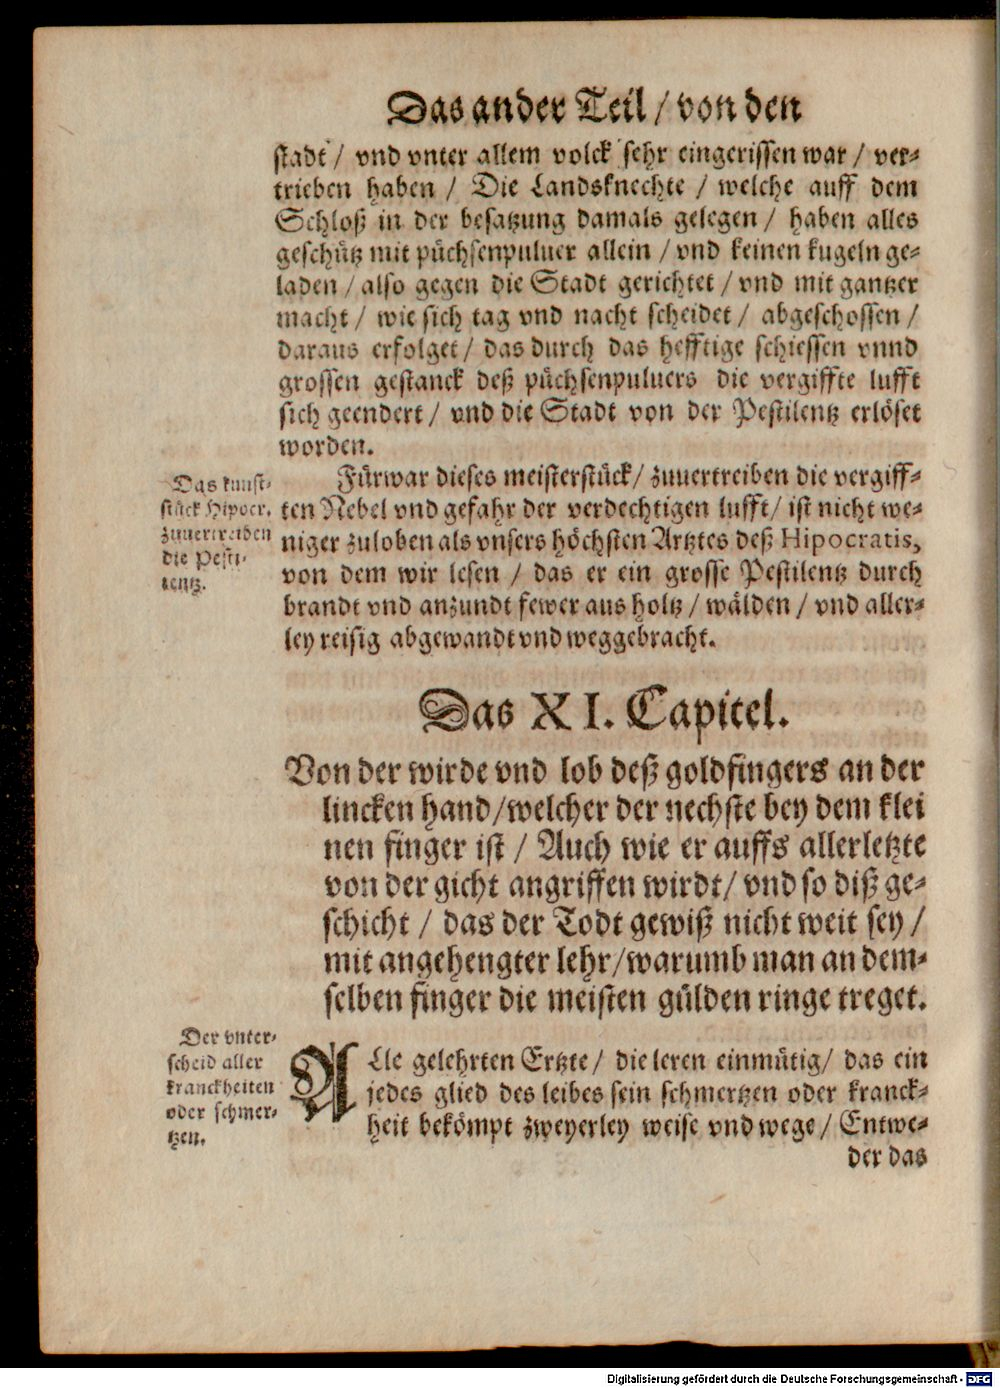 Das ander Teil / von den
stadt / vnd vnter allem volck sehr eingerissen war / ver-
trieben haben / Die Landsknechte / welche auff dem
Schloß in der besatzung damals gelegen / haben alles
geschütz mit püchsenpuluer allein / vnd keinen kugeln ge-
laden / also gegen die Stadt gerichtet / vnd mit gantzer
macht / wie sich tag vnd nacht scheidet / abgeschossen /
daraus erfolget / das durch das hefftige schiessen vnnd
grossen gestanck deß püchsenpuluers die vergiffte lufft
sich geendert / vnd die Stadt von der Pestilentz erlöset
worden.
Fürwar dieses meisterstück / zuuertreiben die vergiff-
ten Nebel vnd gefahr der verdechtigen lufft / ist nicht we-
niger zuloben als vnsers höchsten Artztes deß Hipocratis,
von dem wir lesen / das er ein grosse Pestilentz durch
brandt vnd anzundt fewer aus holtz / wälden / vnd aller-
ley reisig abgewandt vnd weggebracht.
Das kunst-
stück Hipocr.
zuuertreiben
die Pesti-
lentz.
Das XI. Capitel.
Von der wirde vnd lob deß goldfingers an der
lincken hand / welcher der nechste bey dem klei
nen finger ist / Auch wie er auffs allerletzte
von der gicht angriffen wirdt / vnd so diß ge-
schicht / das der Todt gewiß nicht weit sey /
mit angehengter lehr / warumb man an dem-
selben finger die meisten gülden ringe treget.
Der vnter-
scheid aller
kranckheiten
oder schmer-
tzen.
ALle gelehrten Ertzte / die leren einmütig / das ein
jedes glied des leibes sein schmertzen oder kranck-
heit bekömpt zweyerley weise vnd wege / Entwe-
der das
Digitalisierung gefördert durch die Deutsche Forschungsgemeinschaft - DFG